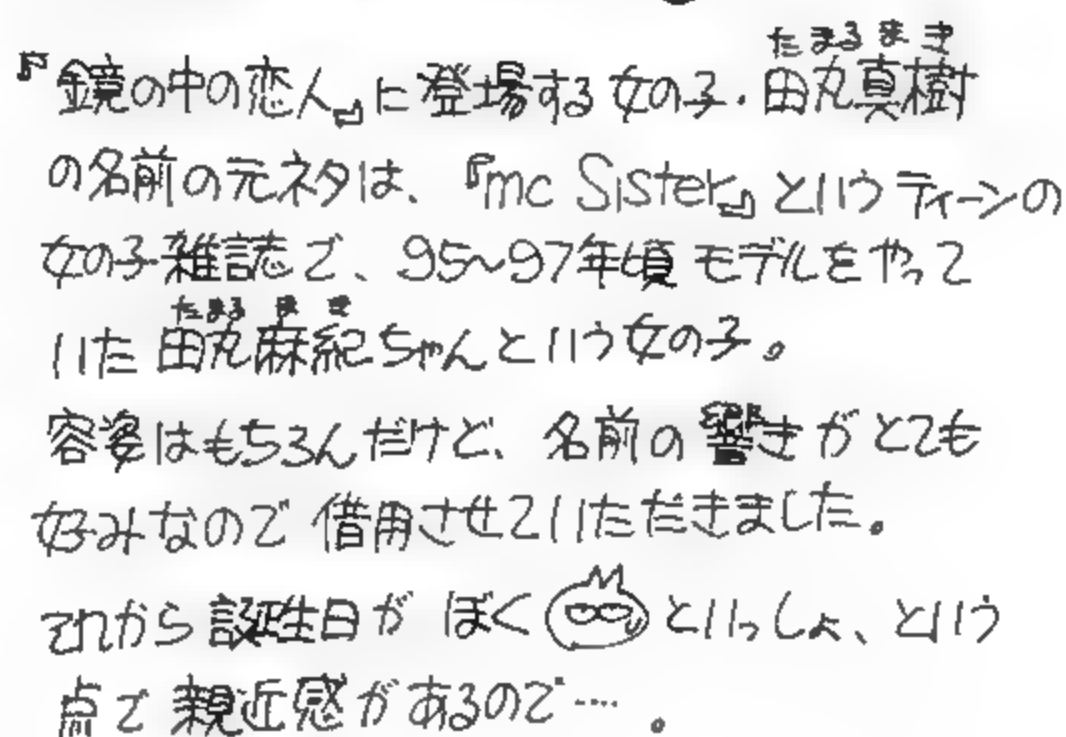 たまるまき
『鏡の中の恋人』に登場する女の子・田丸真樹
の名前の元ネタは、『mc Sister』というティーンの
女の子雑誌で、95~97年頃モデルをやって
たまるまき
いた田丸麻紀ちゃんという女の子。
容姿はもちろんだけど、名前の響きがとても
好みなので借用させていただきました。
それから誕生日がぼくといっしょ、という
点で親近感があるので…。